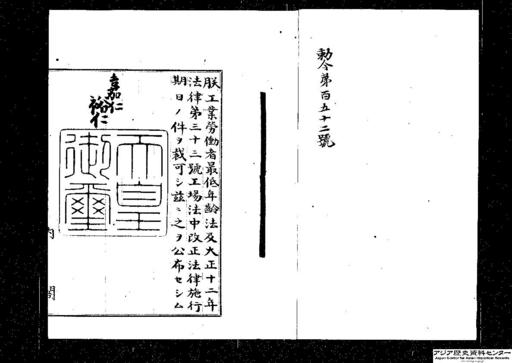 勅令第百五十二號
朕工業勞働者最低年齢法及大正十二年
法律第三十三號工場法中改正法律施行
期日ノ件ヲ裁可シ茲ニ之ヲ公布セシム
嘉仁
裕仁
天皇
御璽
内閣
アジア歴史資料センター
Japan Center for Asian Historical Records